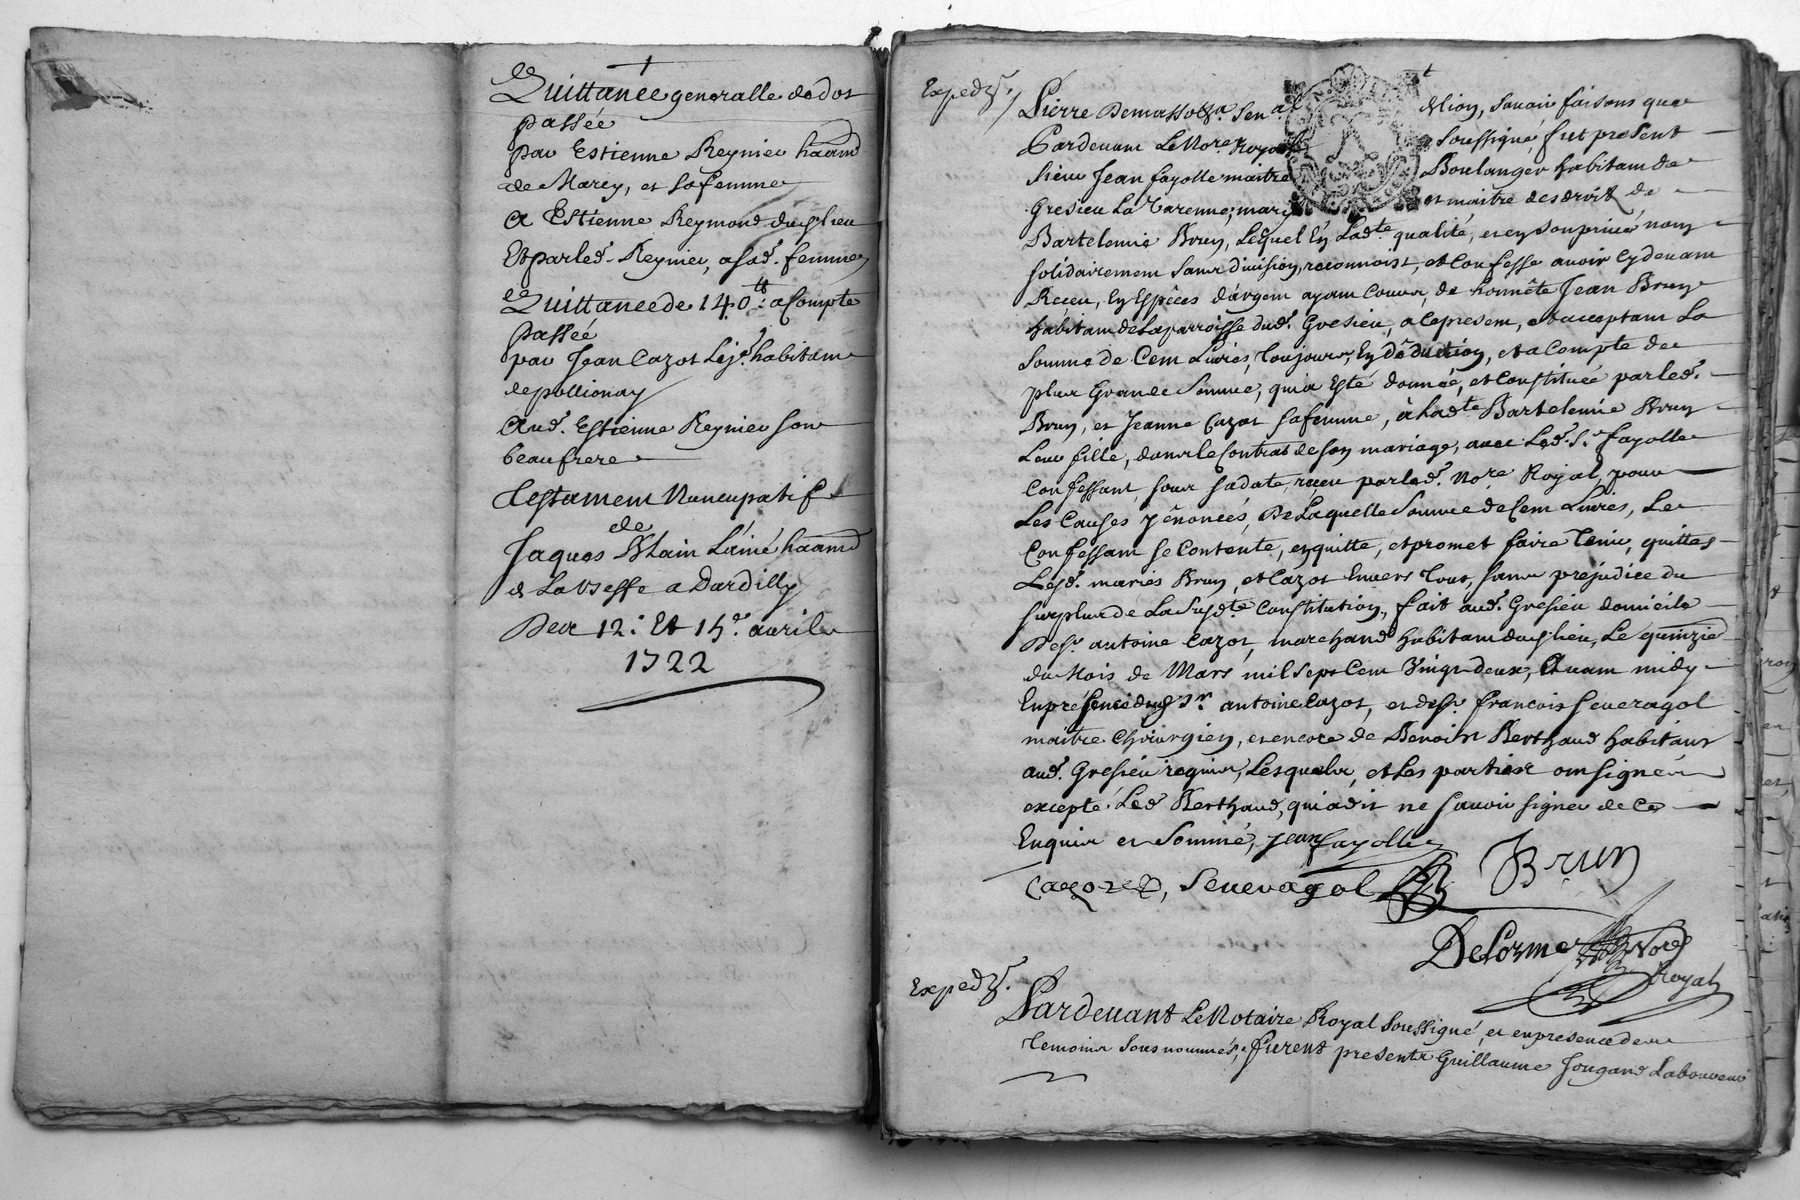 Quittance generalle de dot
passée
par Estienne Reynier
de Marcy, et sa femme
A Estienne Reymond dud. lieu
Et par led. Reynier, a sad. femme
Quittance de 140.tt a Compte
passée
par Jean Cazot habitant
de pollionay
aud. Estienne Reynier son
beaufrere
Testament Nuncupatif
de
Jaques Lainé
de La a Dardilly
Des 12.e Et 15.e avril
1722
Exped.
Pierre Demasso &a. Sen.al Lion, savoir faisons que
Pardevant Le No.re Royal soussigné, fut present
sieur Jean fayolle maitre Boulanger habitant de
Gresieu La Varenne, mary et maitre des droits de
Bartelemie Brun, Lequel En Lad.te qualité, et en son privé nom
solidairement sans division, reconnoist, et Confesse avoir Cydevant
Receu, En Espéces d'argent ayant Cours, de honnête Jean Brun
habitant de La parroisse dud. Gresieu, a Ce present, et acceptant La
somme de Cent Livres, toujours En déduction, et a Compte de
plus Grande Somme, qui a Esté donnée, et Constituée par led.
Brun, et Jeanne Cazot sa femme, à Lad.te Bartelemie Brun
Leur fille, dans le Contrat de son mariage, avec Led. S.r fayolle
Confessant, sous sa date, receu par led. No.re Royal, pour
Les Causes y énoncés, De Laquelle Somme de Cent Livres, Le
Confessant se Contente, en quitte, et promet faire tenir, quittes
Lesd. mariés Brun, et Cazot Envers tous, sans préjudice du
surplus de La Susd.te Constitution, fait aud. Gresieu domicile
De sr. antoine Cazot, marchand habitant dud. lieu, Le quinzie
du Mois de Mars mil sept Cent Vingt deux, Avant midy
En présence dud. Sr. antoine Cazot, et de sr. francois Severagol
maitre Chirurgien, et encore de Benoist Berthaud habitans
aud. Gresieu requis, Lesquels, et les parties ont signé
excepté Led. Berthaud, qui a dit ne savoir signer de Ce
Enquis et Sommé, jean fayolle
Cazot, Severagol Brun
Delorme No.re
Royal
Exped.
Pardevant Le Notaire Royal Soussigné, et en presence de
temoins sous nommés, furent presents Guillaume Jougand Laboureur